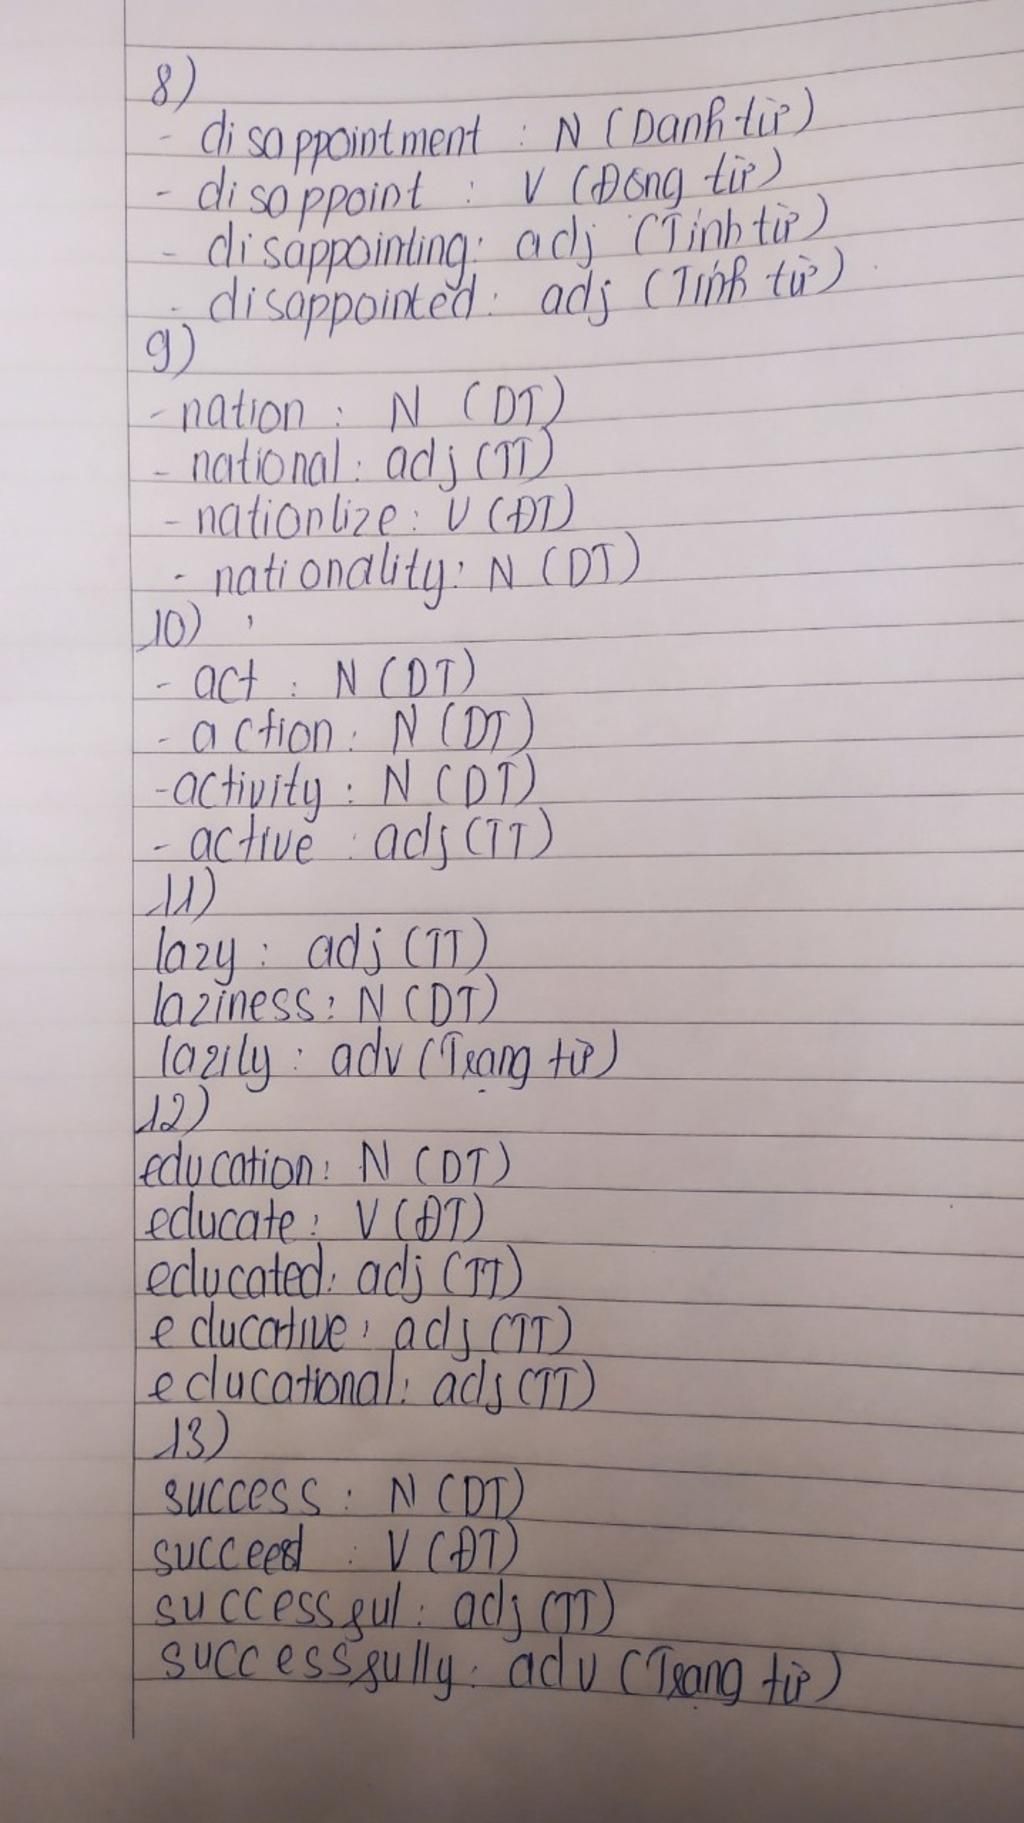 8)
- disappointment : N (Danh từ)
- disappoint : V (Động từ)
- disappointing: adj (Tính từ)
- disappointed: adj (Tính từ)
9)
- nation : N (DT)
- national: adj (TT)
- nationlize: V (ĐT)
- nationality: N (DT)
10)
- act : N (DT)
- action: N (DT)
- activity : N (DT)
- active : adj (TT)
11)
lazy : adj (TT)
laziness: N (DT)
lazily : adv (Trạng từ)
12)
education: N (DT)
educate: V (ĐT)
educated: adj (TT)
educative: adj (TT)
educational: adj (TT)
13)
success : N (DT)
succeed : V (ĐT)
successful: adj (TT)
successfully: adv (Trạng từ)